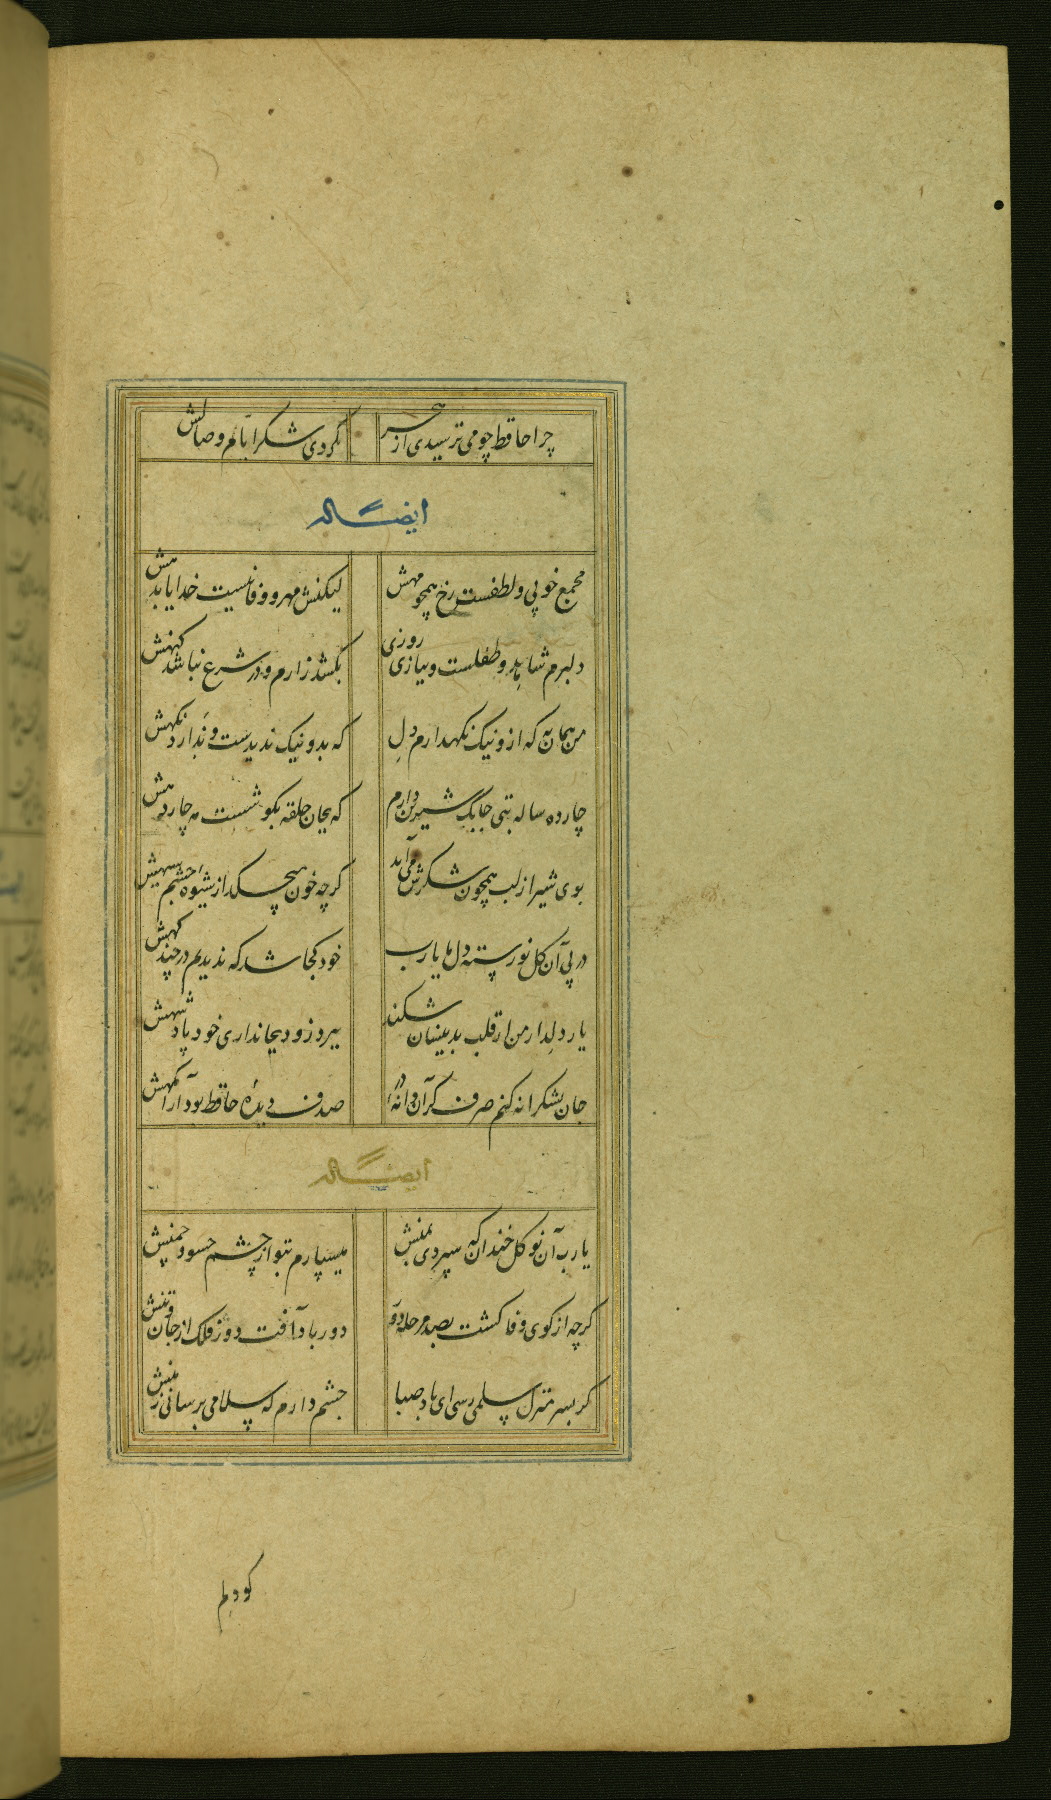 چرا حافظ چو می ترسیدی از هجر نکردی شکر ایام وصالش
ایضا له
مجمع خوبی و لطفست رخ همچو مهش لیکنش مهر و وفا نیست خدایا بدهش
دلبرم شاهد و طفلست و ببازی روزی بکشد زارم و در شرع نباشد گنهش
من همان به که ازو نیک نگهدارم دل که بد و نیک ندیدست و ندارد نگهش
چارده ساله بتی چابک شیرین دارم که بجان حلقه بکوشست مه چاردهش
بوی شیر از لب همچون شکرش می آید کرچه خون میچکد از شیوه چشم سیهش
در پی آن کل نورسته دل ما یارب خود کجا شد که ندیدیم درین چند کهش
یار دلدار من ار قلب بدینسان شکند ببرد زود بجانداری خود پادشهش
جان بشکرانه کنم صرف کر آن دانه در صدف دیده حافظ بود آرامگهش
ایضا له
یا رب آن نو کل خندان که سپردی بمنش میسپارم بتو از چشم حسود چمنش
کرچه از کوی وفا کشت بصد مرحله دور دور باد آفت دور فلک از جان و تنش
کر بسر منزل سلمی رسی ای باد صبا چشم دارم که سلامی برسانی ز منش
کو دلم